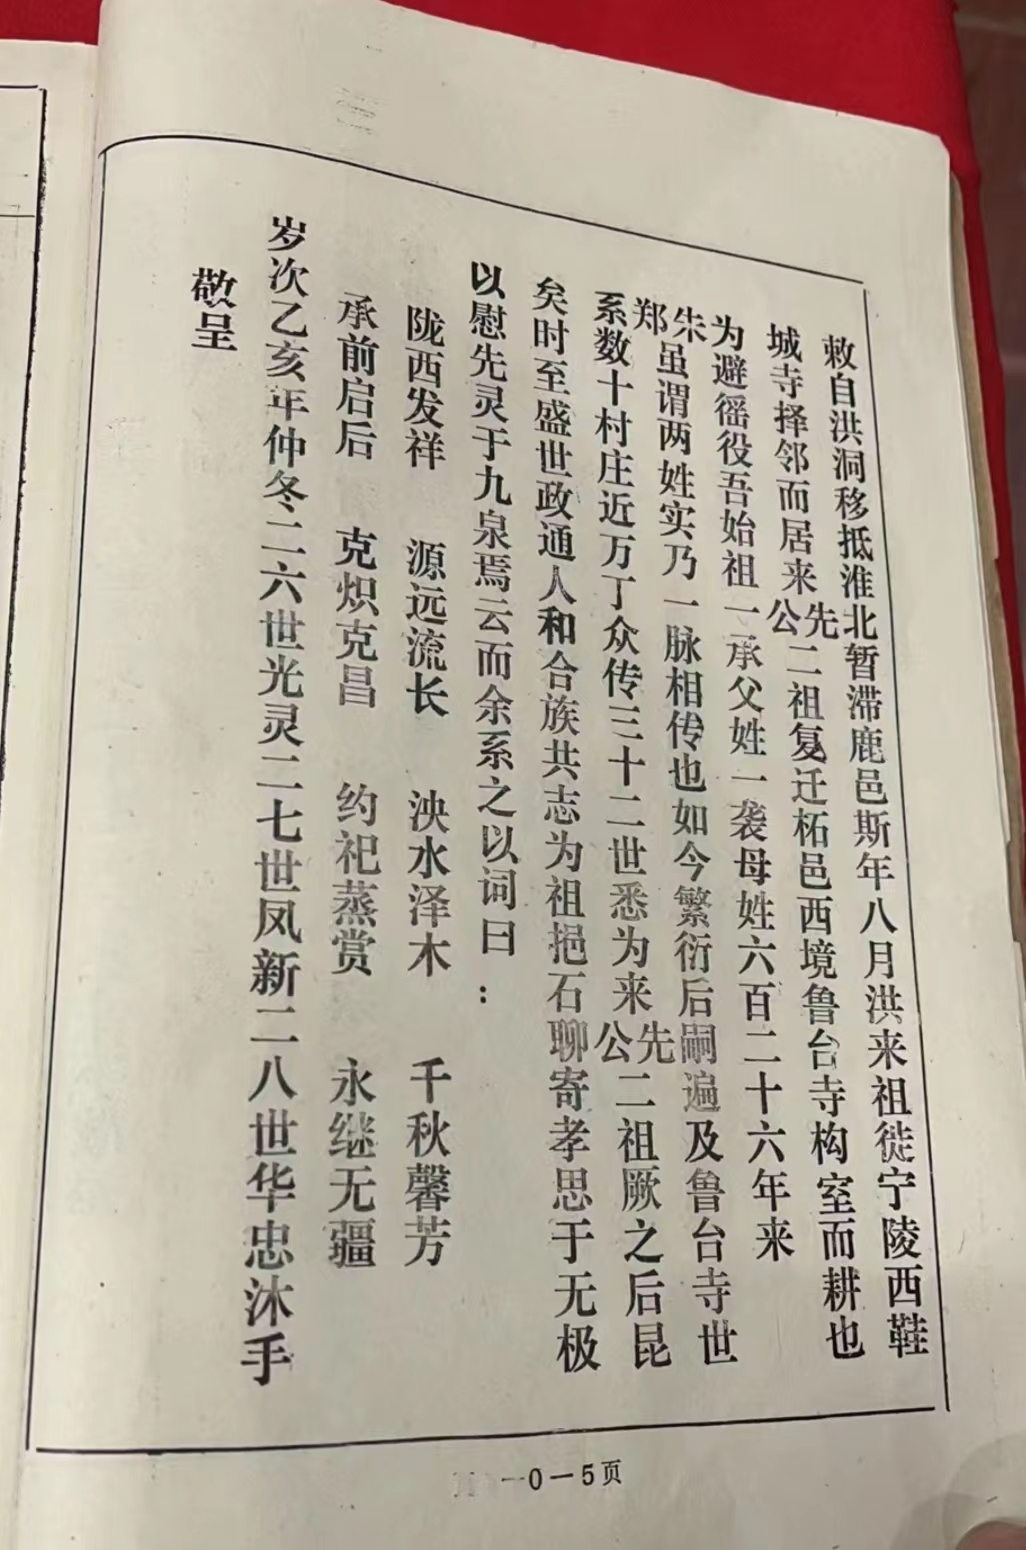 敕自洪洞移抵淮北暂滞鹿邑斯年八月洪来祖徙宁陵西鞋
城寺择邻而居来先公二祖复迁柘邑西境鲁台寺构室而耕也
为避徭役吾始祖一承父姓一袭母姓六百二十六年来
朱郑虽谓两姓实乃一脉相传也如今繁衍后嗣遍及鲁台寺世
系数十村庄近万丁众传三十二世悉为来先公二祖厥之后昆
矣时至盛世政通人和合族共志为祖挹石聊寄孝思于无极
以慰先灵于九泉焉云而余系之以词曰：
陇西发祥 源远流长 泱水泽木 千秋馨芳
承前启后 克炽克昌 约祀蒸赏 永继无疆
岁次乙亥年仲冬二六世光灵二七世凤新二八世华忠沐手
敬呈
一0一5页